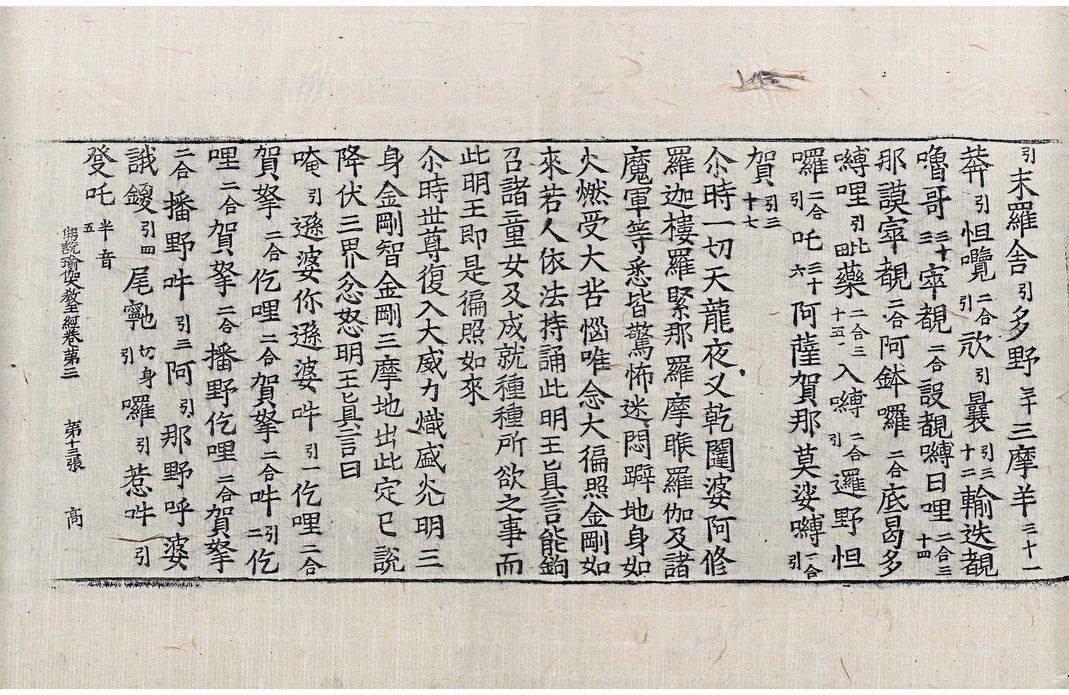 引末羅舍引多野三十三摩羊三十一
莾引怛囕二合引欣引曩引三十二輸迭覩
嚕哥三十三寗覩二合設覩嚩日哩二合三十四
那謨寗覩二合阿鉢囉二合底曷多
嚩哩引比四藥二合三十五入嚩二合引邏野怛
囉二合引吒三十六阿薩賀那莫娑嚩二合引
賀引三十七
尒時一切天龍夜叉乾闥婆阿修
羅迦樓羅緊那羅摩睺羅伽及諸
魔軍等悉皆驚怖迷悶躃地身如
火燃受大苦惱唯念大徧照金剛如
來若人依法持誦此明王真言能鉤
召諸童女及成就種種所欲之事而
此明王即是徧照如來
尒時世尊復入大威力熾盛光明三
身金剛智金剛三摩地出此定已說
降伏三界忿怒明王真言曰
唵引遜婆你遜婆吽引一仡哩二合
賀拏二合仡哩二合賀拏二合吽引二仡
哩二合賀拏二合播野仡哩二合賀拏
二合播野吽引三阿引那野呼婆
誐鑁引四尾𩕳切身引囉引惹吽引
發吒半音五
佛說瑜伽教王經卷第三 第十三張 高